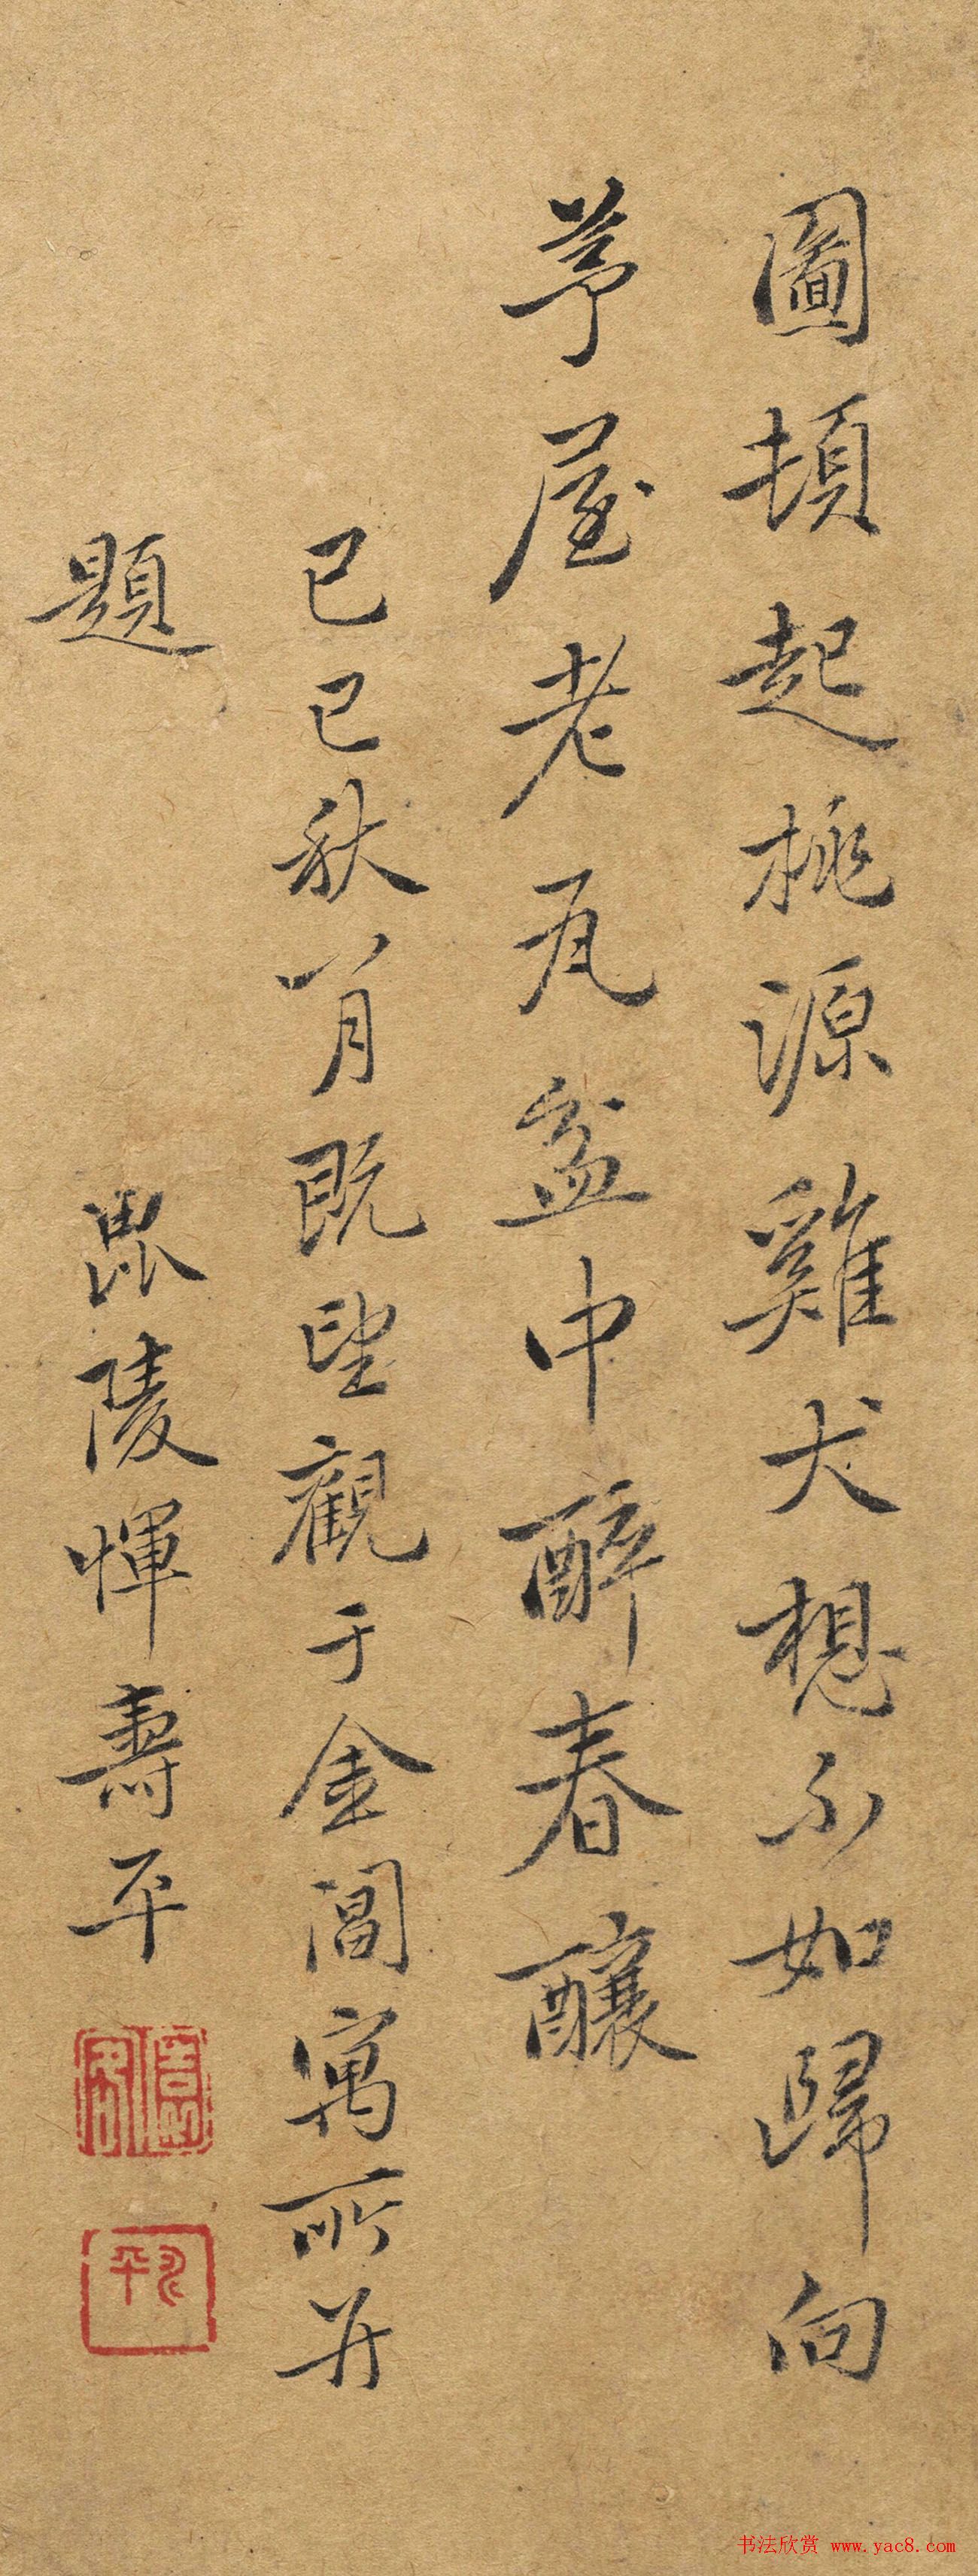 圖頓起桃源雞犬想不如歸向
茅屋老瓦盆中醉春釀
己巳秋八月既望觀于金閶寓所并
題 毘陵惲壽平
书法欣赏 www.yac8.com